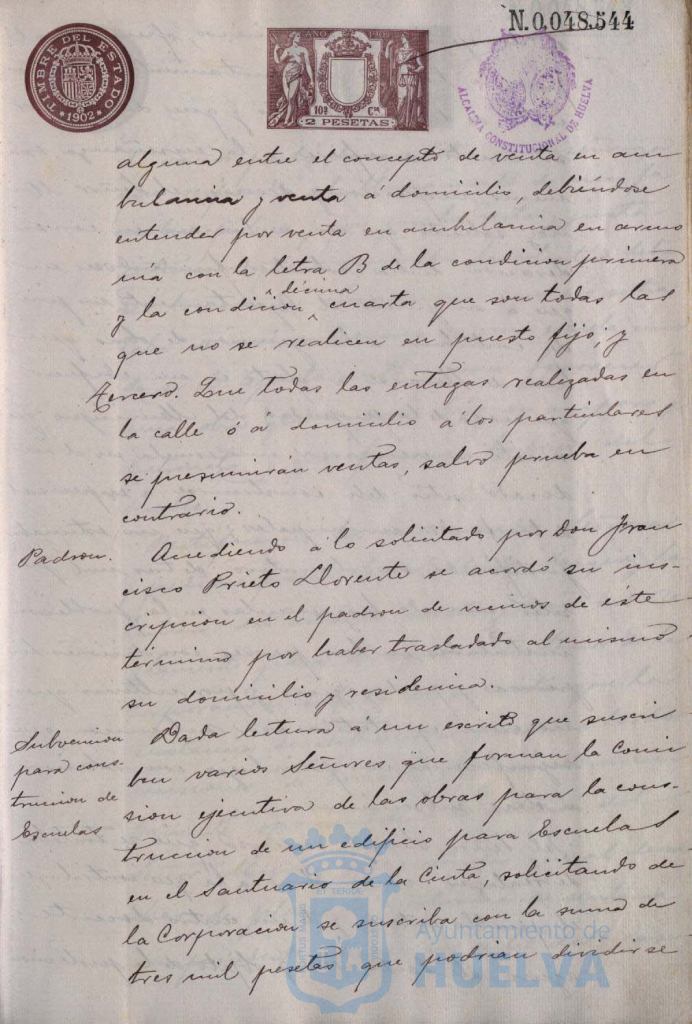 N.0,048,544
TIMBRE DEL ESTADO
1902
AÑO 1902
10ª Cª
2 PESETAS
ALCALDIA CONSTITUCIONAL DE HUELVA
alguna entre el concepto de venta en am
bulancia y venta á domicilio, debiéndose
entender por venta en ambulancia en armo
nía con la letra B de la condicion primera
y la condicion décima cuarta que son todas las
que no se realicen en puesto fijo; y
tercero. Que todas las entregas realizadas en
la calle ó á domicilio á los particulares
se presumirán ventas, salvo prueba en
contrario.
Padron.
Accediendo á lo solicitado por Don Fran
cisco Prieto Llorente se acordó su ins-
cripcion en el padron de vecinos de éste
término por haber trasladado al mismo
su domicilio y residencia.
Subvencion
para cons-
truccion de
Escuelas
Dada lectura á un escrito que suscri
ben varios Señores que forman la Comi
sion ejecutiva de las obras para la cons-
truccion de un edificio para Escuelas
en el Santuario de la Cinta, solicitando de
la Corporacion se suscriba con la suma de
tres mil pesetas que podrian dividirse
Ayuntamiento de
HUELVA